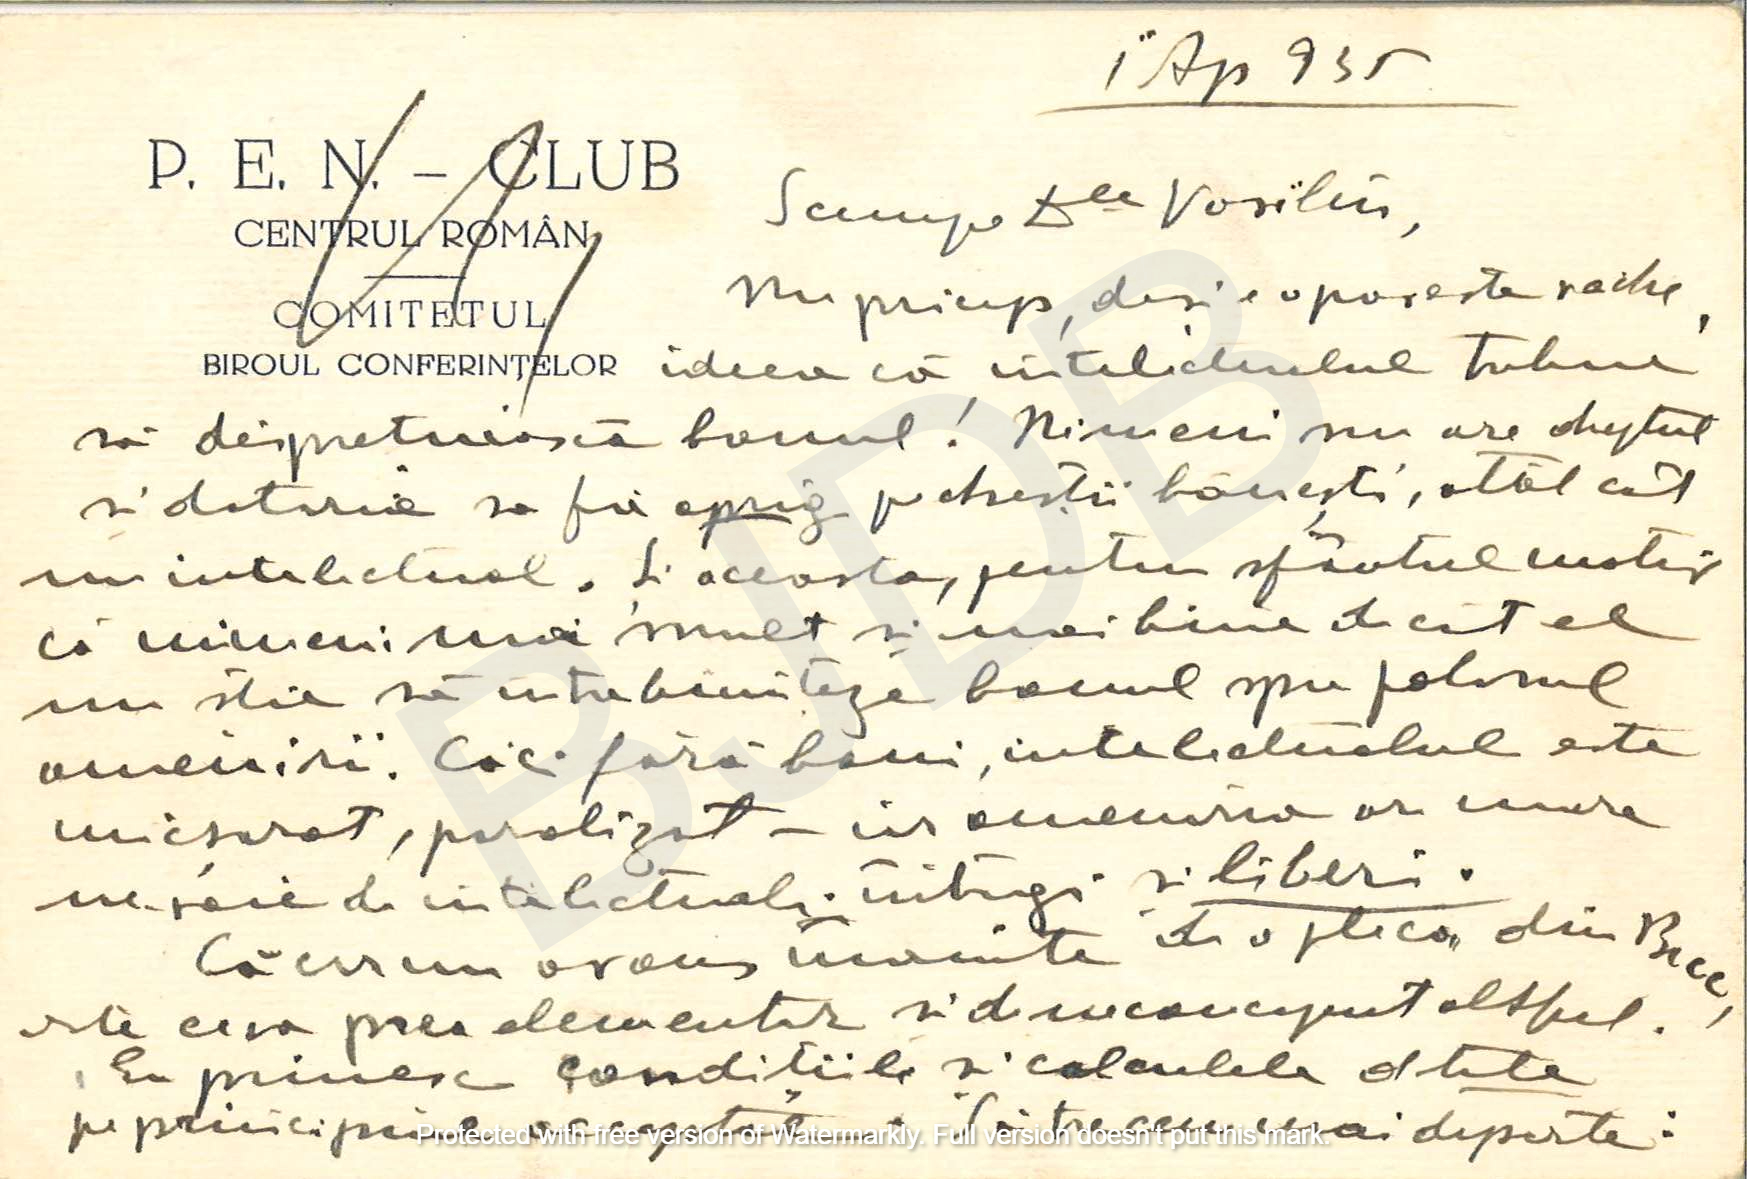 1 Ap 935
P. E. N. – CLUB
CENTRUL ROMÂN
COMITETUL
BIROUL CONFERINȚELOR
Scumpe Dle Vasiliu,
Nu pricep, deși e o poveste veche,
ideea că intelectualul trebue
să desprețuiască banul! Nimeni nu are dreptul
și datoria să fie aprig pe chestii bănești, atât cât
un intelectual. Și aceasta, pentru sfântul motiv
că nimeni mai mult și mai bine de cât el
nu știe să întrebuințeze banul spre folosul
omenirii. Căci fără bani, intelectualul este
micșorat, paralizat – iar omenirea are mare
nevoie de intelectuali întregi și liberi.
Că cerem avans înainte de a pleca din Buc,
este ceva prea elementar și de neconceput altfel.
Eu primesc condițiile și calculele
pe principiul Și trecem mai departe:
BJDB
Protected with free version of Watermarkly. Full version doesn't put this mark.